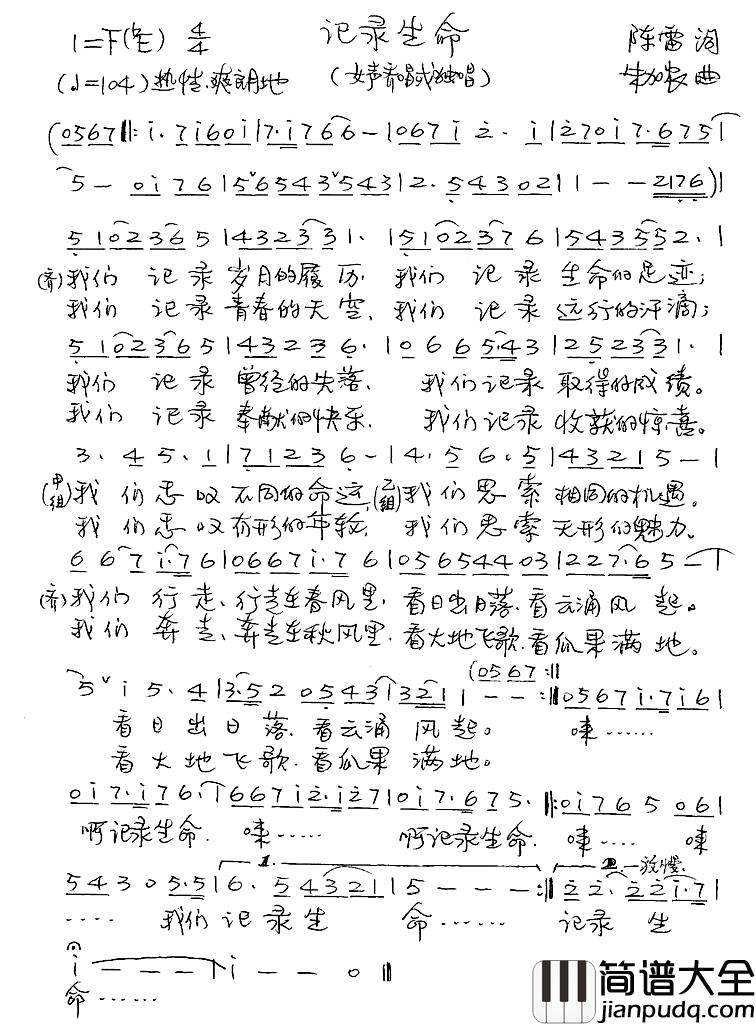 记录生命
1=F(ᵇE) 4/4
陈雷 词
(♩=104) 热情、爽朗地
(女声齐唱或独唱)
朱加农 曲
(0567‖: i. 7i60i|7.i766-|067i 2. i|270i7.675|
5- 0i76|5ˇ6543ˇ543|2. 54302|1--2176)|
5102365|43233 1.|5102376|543552.|
(齐)我们 记录岁月的履历, 我们 记录 生命的足迹;
我们 记录青春的天空, 我们 记录 远行的汗滴;
5102365|43236.|0665.43|252331.|
我们 记录 曾经的失落, 我们记录 取得的成绩。
我们 记录 奉献的快乐, 我们记录 收获的惊喜。
3. 45. 1|71236-|4. 56. 5|432 15-|
(甲组)我们感叹不同的命运,(乙组)我们思索相同的机遇。
我们感叹有形的年轮, 我们思索无形的魅力。
667i.76|0667i.76|05654403|227.65-|
(齐)我们 行走、行走在春风里, 看日出日落、看云涌风 起。
我们 奔走、奔走在秋风里, 看大地飞歌、看瓜果满 地。
(0567:‖
5ˇi 5. 4|3.520543|3211--:‖0567i.7i6|
看日出日落、看云涌风起。 唻……
看大地飞歌、看瓜果满地。
0i7.i76.|667i2.i27|0i7.675.‖:0i76506|
啊记录生命, 唻…… 啊记录生命, 唻…… 唻
1. 2. 放慢
54305.5|6. 54321|5---:‖22.22i.7|
…… 我们记录生 命…… 记录 生
i---|i--0‖
命……
简谱大全
jianpudq.com